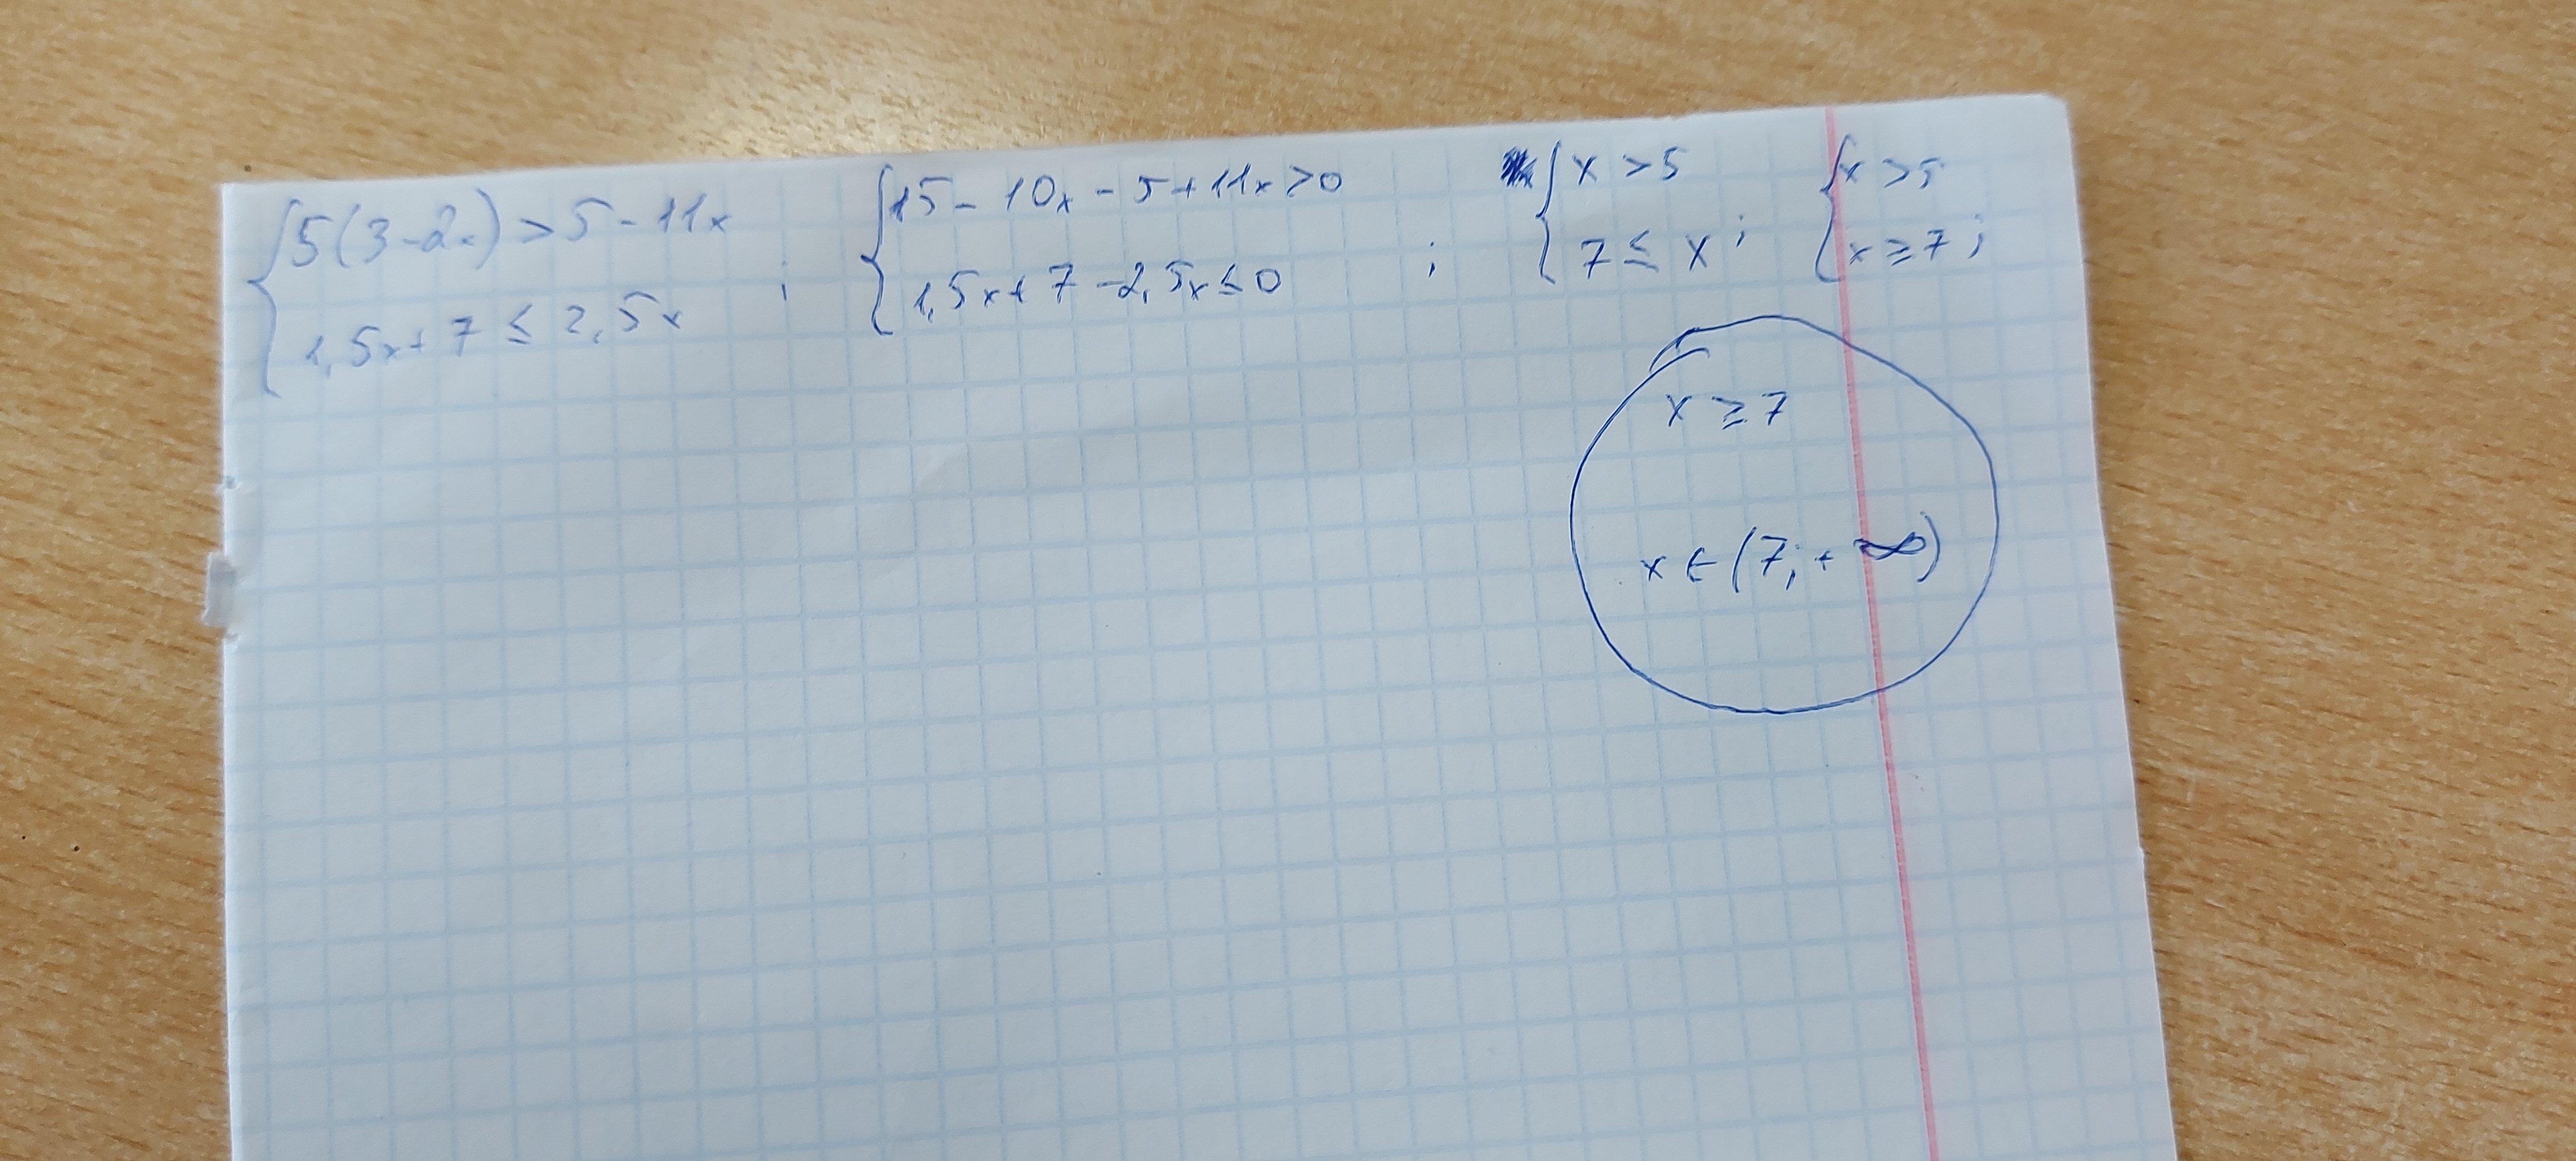 {5(3-2x) > 5 - 11x
1,5x + 7 ≤ 2,5x ;
{15 - 10x - 5 + 11x > 0
1,5x + 7 - 2,5x ≤ 0 ;
{x > 5
7 ≤ x ;
{x > 5
x ≥ 7 ;
x ≥ 7
x ∈ (7; + ∞)